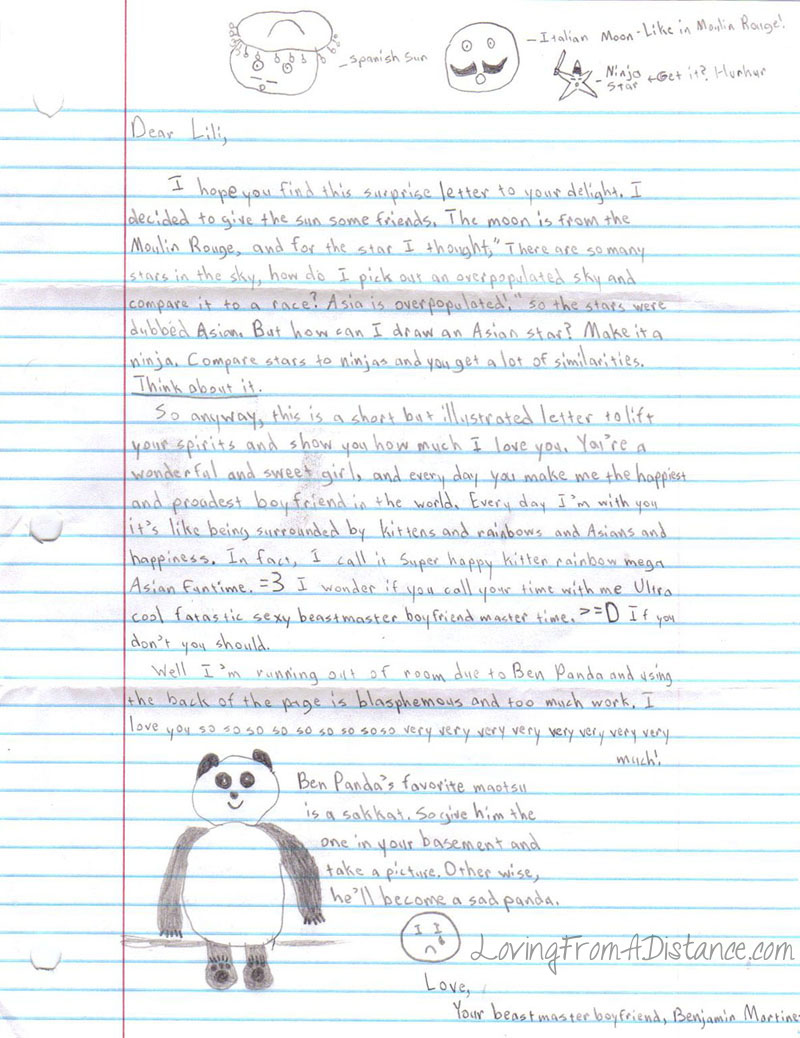 Spanish Sun
Italian Moon - Like in Moulin Rouge!
Ninja Star ← Get it? Hurhur
Dear Lili,
I hope you find this surprise letter to your delight. I
decided to give the sun some friends. The moon is from the
Moulin Rouge, and for the star I thought, "There are so many
stars in the sky, how do I pick out an overpopulated sky and
compare it to a race? Asia is overpopulated!" so the stars were
dubbed Asian. But how can I draw an Asian star? Make it a
ninja. Compare stars to ninjas and you get a lot of similarities.
Think about it.
So anyway, this is a short but illustrated letter to lift
your spirits and show you how much I love you. You're a
wonderful and sweet girl, and every day you make me the happiest
and proudest boyfriend in the world. Every day I'm with you
it's like being surrounded by kittens and rainbows and Asians and
happiness. In fact, I call it Super happy kitten rainbow mega
Asian funtime. =3 I wonder if you call your time with me Ultra
cool fatastic sexy beastmaster boyfriend master time. >=D If you
don't you should.
Well I'm running out of room due to Ben Panda and using
the back of the page is blasphemous and too much work. I
love you so so so so so so so so so very very very very very very very very
much!
Ben Panda's favorite maotsu
is a sakkat. So give him the
one in your basement and
take a picture. Other wise,
he'll become a sad panda.
LovingFromADistance.com
Love,
Your beastmaster boyfriend, Benjamin Martine